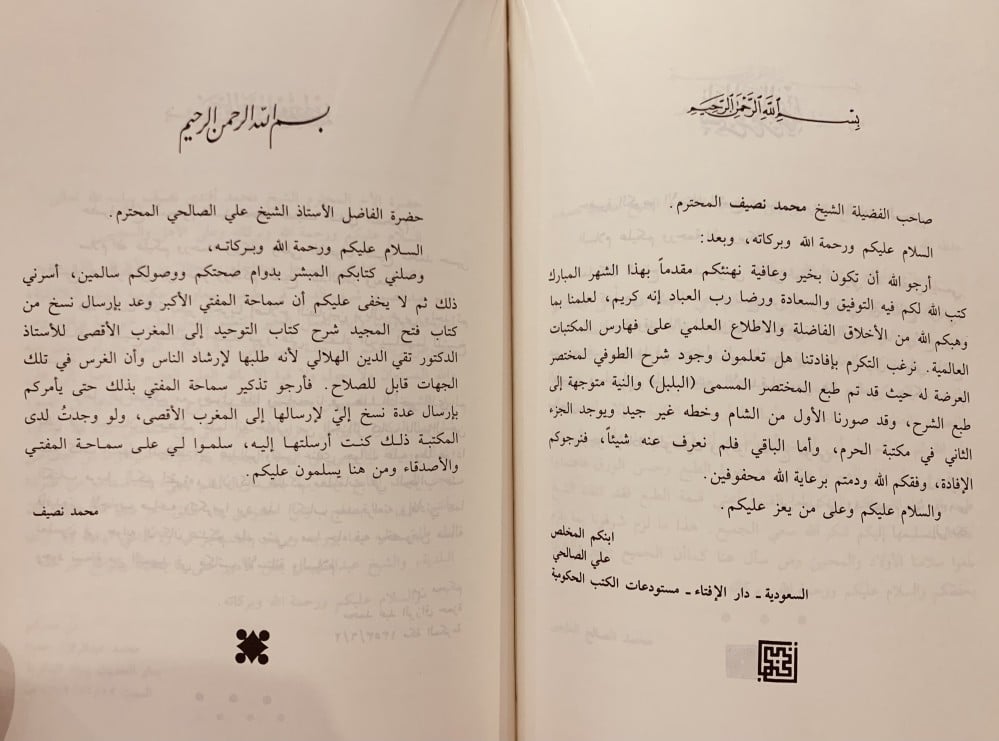 بسم الله الرحمن الرحيم
صاحب الفضيلة الشيخ محمد نصيف المحترم.
السلام عليكم ورحمة الله وبركاته، وبعد:
أرجو الله أن تكون بخير وعافية نهنئكم مقدماً بهذا الشهر المبارك
كتب الله لكم فيه التوفيق والسعادة ورضا رب العباد إنه كريم، لعلمنا بما
وهبكم الله من الأخلاق الفاضلة والاطلاع العلمي على فهارس المكتبات
العالمية. نرغب التكرم بإفادتنا هل تعلمون وجود شرح الطوفي لمختصر
العرضة له حيث قد تم طبع المختصر المسمى (البلبل) والنية متوجهة إلى
طبع الشرح، وقد صورنا الأول من الشام وخطه غير جيد ويوجد الجزء
الثاني في مكتبة الحرم، وأما الباقي فلم نعرف عنه شيئاً، فنرجوكم
الإفادة، وفقكم الله ودمتم برعاية الله محفوفين.
والسلام عليكم وعلى من يعز عليكم.
ابنكم المخلص
علي الصالحي
السعودية ـ دار الإفتاء ـ مستودعات الكتب الحكومية
بسم الله الرحمن الرحيم
حضرة الفاضل الأستاذ الشيخ علي الصالحي المحترم.
السلام عليكم ورحمة الله وبركاته،
وصلني كتابكم المبشر بدوام صحتكم ووصولكم سالمين، أسرني
ذلك ثم لا يخفى عليكم أن سماحة المفتي الأكبر وعد بإرسال نسخ من
كتاب فتح المجيد شرح كتاب التوحيد إلى المغرب الأقصى للأستاذ
الدكتور تقي الدين الهلالي لأنه طلبها لإرشاد الناس وأن الغرس في تلك
الجهات قابل للصلاح. فأرجو تذكير سماحة المفتي بذلك حتى يأمركم
بإرسال عدة نسخ إليّ لإرسالها إلى المغرب الأقصى، ولو وجدتُ لدى
المكتبة ذلك كنت أرسلتها إليه، سلموا لي على سماحة المفتي
والأصدقاء ومن هنا يسلمون عليكم.
محمد نصيف